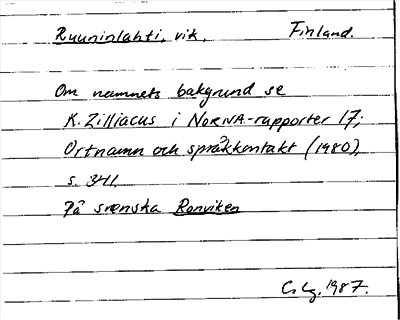 Ruuninlahti, vik. Finland.
Om namnets bakgrund se
K. Zilliacus i NORNA-rapporter 17;
Ortnamn och språkkontakt (1980),
s. 341.
På svenska Ronviken
1987.